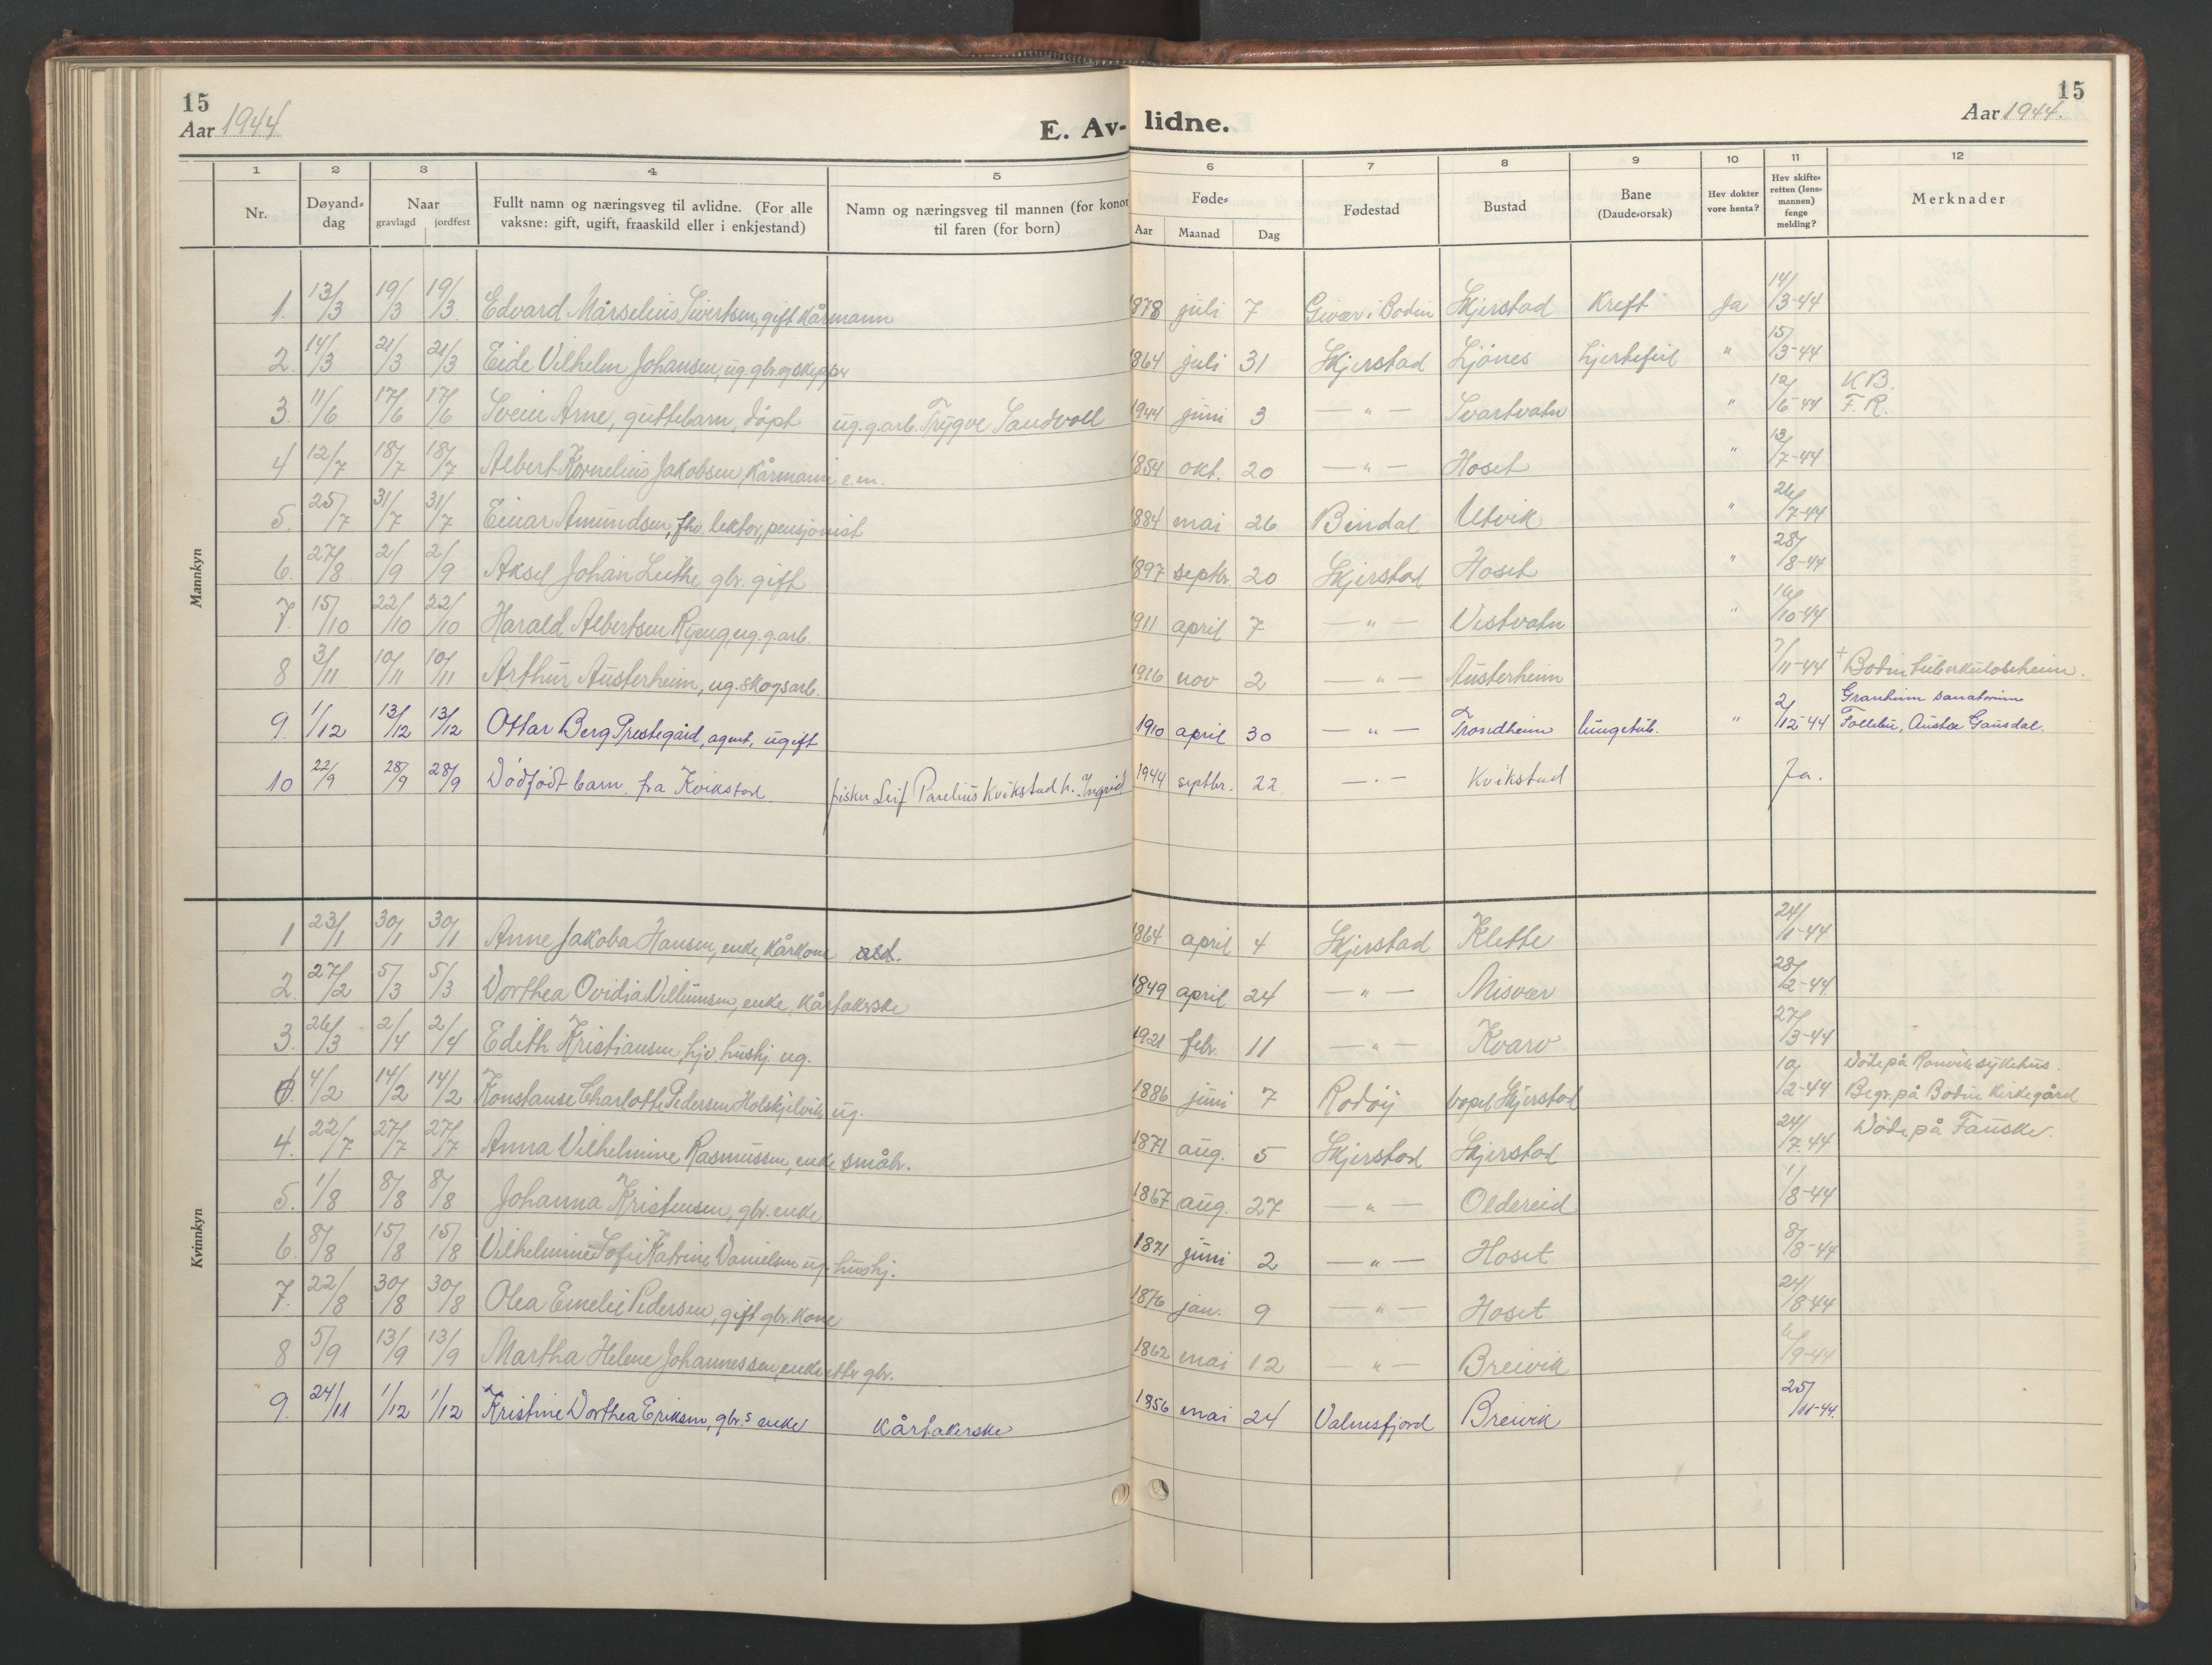 15
Aar 1944
E. Av-
lidne.
15
Aar 1944.
1 2 3 4 5 6 7 8 9 10 11 12
Nr. Døyand-dag Naar gravlagd jordfest Fullt namn og næringsveg til avlidne. (For alle vaksne: gift, ugift, fraaskild eller i enkjestand) Namn og næringsveg til mannen (for konor til faren (for born) Føde- Aar Maanad Dag Fødestad Bustad Bane (Daude-orsak) Hev dokter vore henta? Hev skifte-retten (lens-mannen) fenge melding? Merknader
Mannkyn
1. 13/3 19/3 19/3 Edvard Mårselius Sivertsen, gift kårmann 1878 juli 7 Givær i Bodin Skjerstad Kreft Ja 14/3-44
2. 14/3 21/3 21/3 Eide Vilhelm Johansen, ug. gbr. og skipper 1864 juli 31 Skjerstad Ljönes hjertefeil " 15/3-44
3. 11/6 17/6 17/6 Svein Arne, guttebarn, döpt ug. g.arb. Trygve Sandvoll 1944 juni 3 — " — Svartvatn " 12/6-44 K.B. F.R.
4 12/7 18/7 18/7 Albert Kornelius Jakobsen kårmann e.m. 1854 okt. 20 — " — Hoset " 13/7-44
5. 25/7 31/7 31/7 Einar Amundsen, fhv. lektor, pensjonist 1884 mai 26 Bindal Utvik " 26/7-44
6. 27/8 2/9 2/9 Aksel Johan Leithe gbr. gift 1897 septbr. 20 Skjerstad Hoset " 28/8-44
7. 15/10 22/10 22/10 Harald Albertsen Ryeng, ug. g.arb. 1911 april 7 — " — Vestvatn " 16/10-44
8 3/11 10/11 10/11 Arthur Austerheim, ug. skogsarb. 1916 nov 2 — " — Austerheim 7/11-44 + Bodin tuberkuloseheim.
9. 1/12 13/12 13/12 Ottar Berg Prestegård, agent, ugift 1910 april 30 — " — Trondheim lungetub. " 2/12-44 Granheim sanatorium Follebu, Austre Gausdal.
10 22/9 28/9 28/9 Dödfödt barn fra Kvikstad. fisker Leif Parelius Kvikstad h. Ingrid 1944 septbr. 22. — " — Kvikstad Ja.
Kvinnkyn
1 23/1 30/1 30/1 Anne Jakoba Hansen, enke, kårkone 1864 april 4 Skjerstad Klette 24/1-44
2. 27/2 5/3 5/3 Dorthea Ovidia Villumsen, enke, kårtakerske 1849 april 24 — " — Misvær 28/2-44
3. 26/3 2/4 2/4 Edith Kristiansen, hjv. hushj. ug. 1921 febr. 11 — " — Kvarv 27/3-44
4/2 14/2 14/2 Konstanse Charlotte Pedersen Holskjelvik ug. 1886 juni 7 Rodöy bopel Skjerstad 10/2-44 Döde på Rønvik sykehus. Begr. på Bodin kirkegård
4. 22/7 27/7 27/7 Anna Vilhelmine Rasmussen, enke småbr. 1871 aug. 5 Skjerstad Skjerstad 24/7-44 Döde på Fauske.
5. 1/8 8/8 8/8 Johanna Kristensen, gbr. enke 1867 aug. 27 — " — Oldereid 1/8-44
6. 8/8 15/8 15/8 Vilhelmine Sofie Katrine Danielsen ug. hushj. 1871 juni 2 — " — Hoset 8/8-44
7. 22/8 30/8 30/8 Olea Emelie Pedersen, gift gbr. kone 1876 jan. 9 — " — Hoset 24/8-44
8 5/9 13/9 13/9 Martha Helene Johannessen, enke etter gbr. 1862 mai 12 — " — Breivik 6/9-44
9. 24/11 1/12 1/12 Kristine Dorthea Eriksen, gbr.s enke kårtakerske 1856 mai 24 Valnesfjord Breivik 25/11-44.